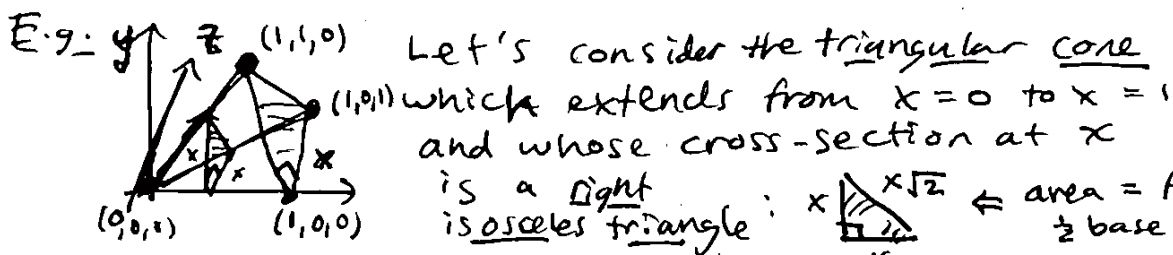 E.g: y z (1,1,0) Let's consider the triangular cone
(1,0,1) which extends from x = 0 to x = 1
x x x and whose cross-section at x
(0,0,0) (1,0,0) is a right
isosceles triangle : x x√2 ⇐ area =
½ base